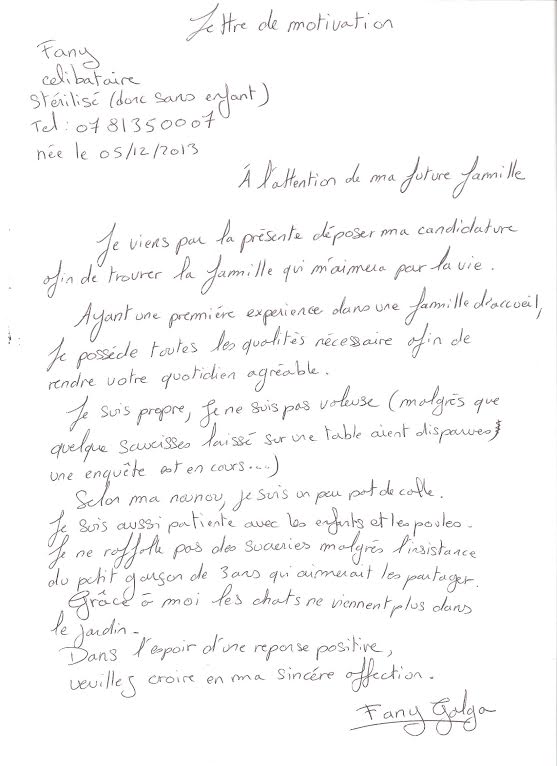 Lettre de motivation
Fany
celibataire
Stérilisé (donc sans enfant)
Tel : 07 81350007
née le 05/12/2013
À l'attention de ma future famille
Je viens par la présente déposer ma candidature
afin de trouver la famille qui m'aimera par la vie.
Ayant une première experience dans une famille d'accueil,
Je possède toutes les qualités nécessaire afin de
rendre votre quotidien agréable.
Je suis propre, Je ne suis pas voleuse (malgrès que
quelque saucisses laissé sur une table aient disparues,
une enquête est en cours....)
Selon ma nounou, je suis un peu pot de colle.
Je suis aussi patiente avec les enfants et les poules.
Je ne raffolle pas des sucreries malgrès l'insistance
du petit garçon de 3 ans qui aimerait les partager.
Grâce à moi les chats ne viennent plus dans
le jardin.
Dans l'espoir d'une reponse positive,
veuillez croire en ma sincére affection.
Fany Galga